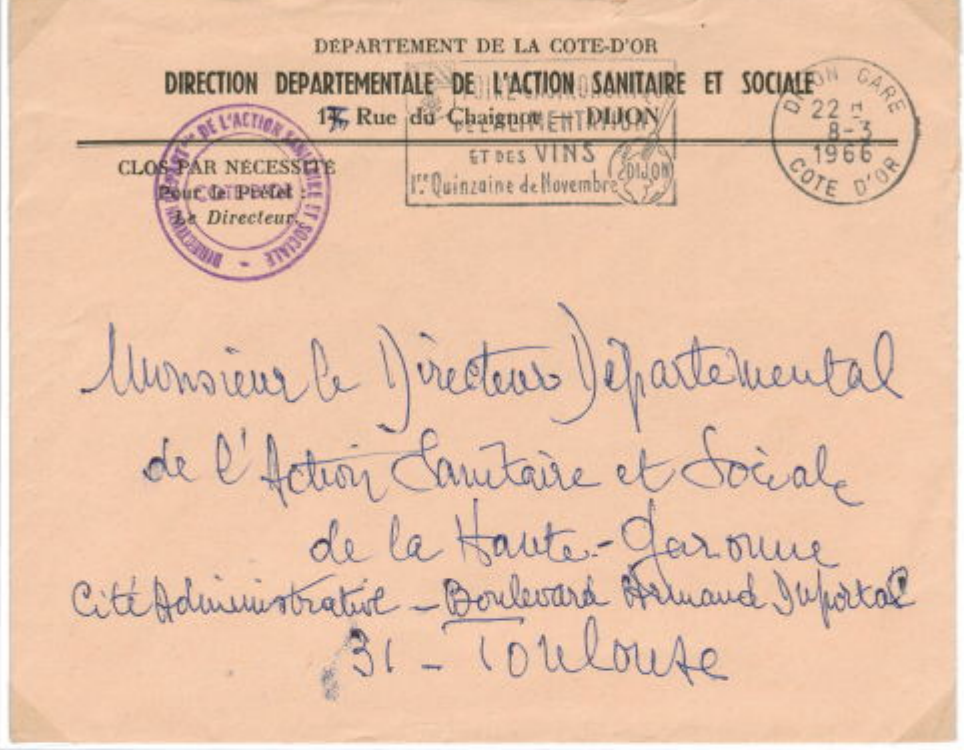 DÉPARTEMENT DE LA COTE-D'OR
DIRECTION DEPARTEMENTALE DE L'ACTION SANITAIRE ET SOCIALE
Rue du Chaignot — DIJON
CLOS PAR NÉCESSITÉ
Pour le Préfet :
Le Directeur,
DIRECTION DE L'ACTION SANITAIRE ET SOCIALE
COTE-D'OR
DE L'ALIMENTATION
ET DES VINS
1re Quinzaine de Novembre
DIJON
DIJON GARE
22 H
8-3
1966
COTE D'OR
Monsieur le Directeur Départemental
de l'Action Sanitaire et Sociale
de la Haute-Garonne
Cité Administrative - Boulevard Armand Duportal
31 - Toulouse